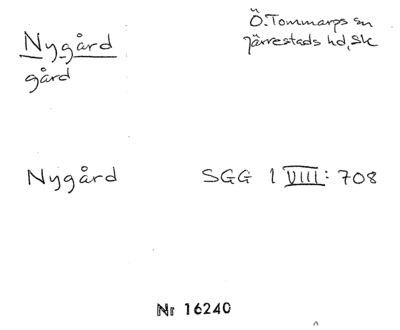 Nygård
gård
Ö. Tommarps sn
Järrestads hd, Sk
Nygård SGG 1 VIII: 708
Nr 16240